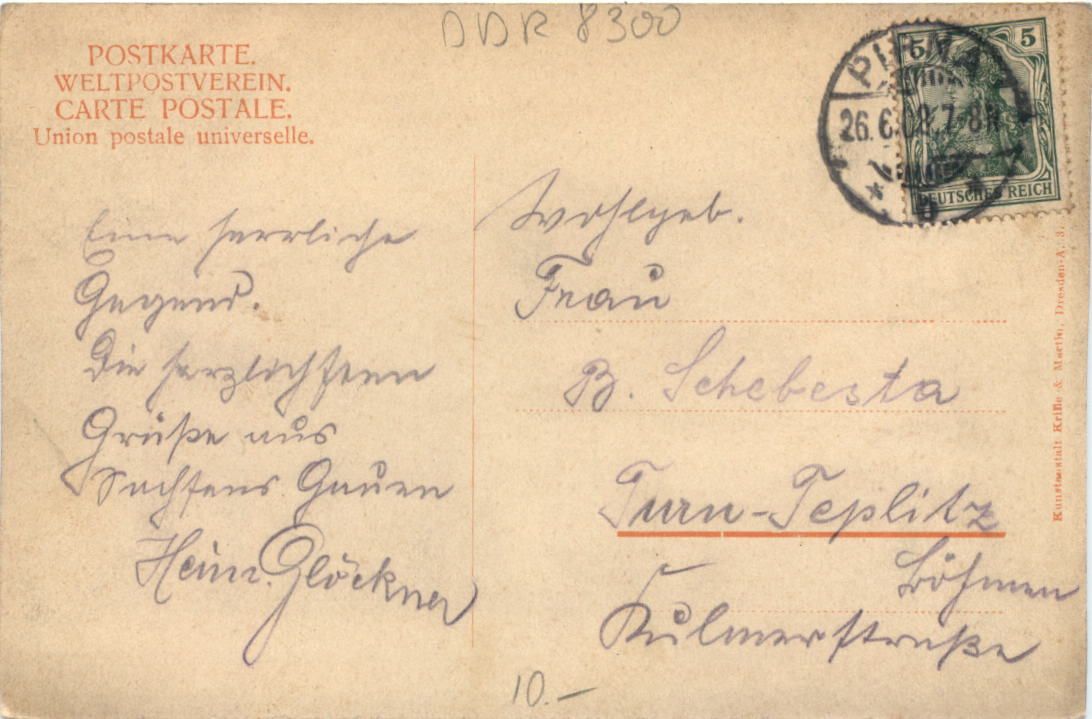 DDR 8300
POSTKARTE.
WELTPOSTVEREIN.
CARTE POSTALE.
Union postale universelle.
PIRNA
26.6.08.7-8N
5 5
DEUTSCHES REICH
Eine herrliche
Gegend.
Die herzlichsten
Grüße aus
Sachsens Gauen
Heinr. Glöckner
Wohlgeb.
Frau
B. Schebesta
Turn-Teplitz
Böhmen
Kulmerstraße
Kunstanstalt Krille & Martin, Dresden-A. 3.
10.-